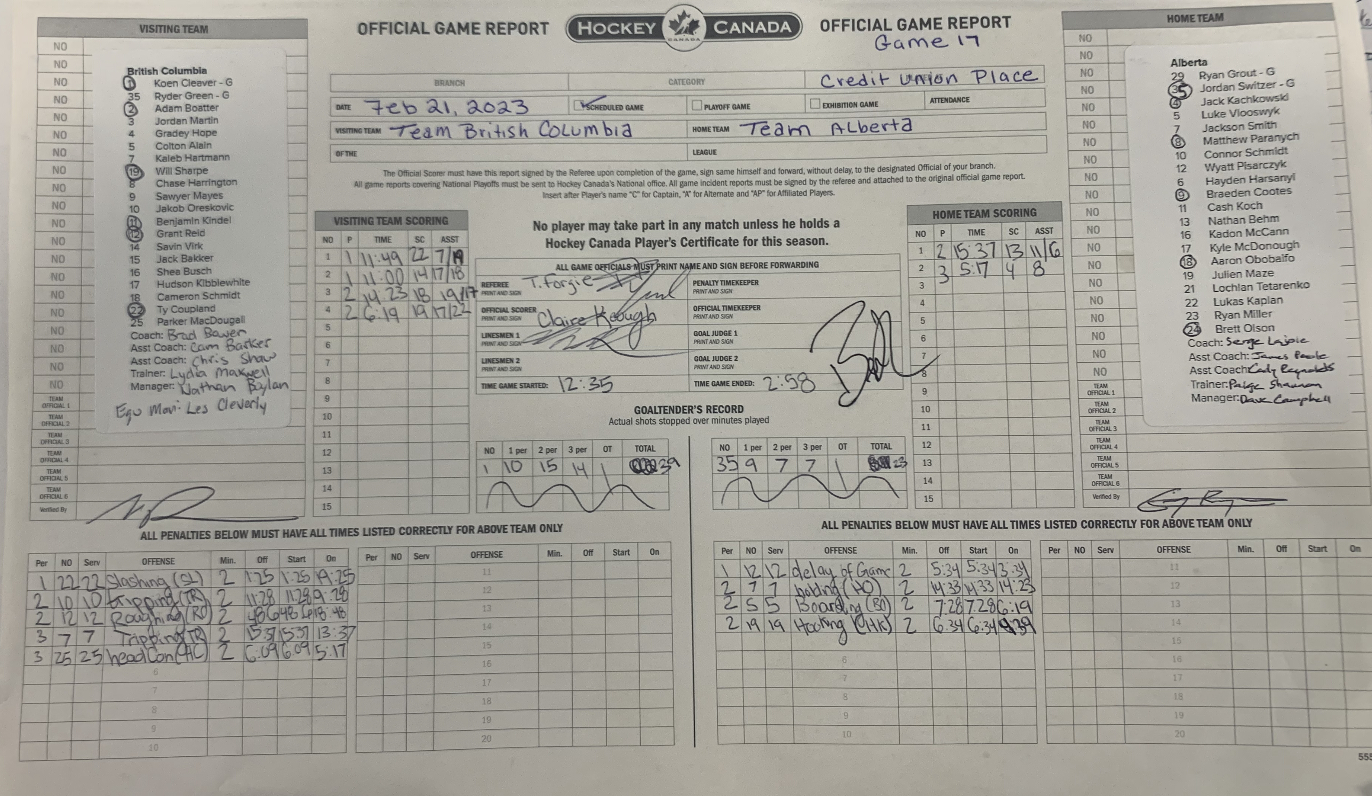 VISITING TEAM
OFFICIAL GAME REPORT
HOCKEY CANADA
CANADA
OFFICIAL GAME REPORT
Game 17
HOME TEAM
NO
British Columbia
1 Koen Cleaver - G
35 Ryder Green - G
2 Adam Boatter
3 Jordan Martin
4 Gradey Hope
5 Colton Alain
7 Kaleb Hartmann
19 Will Sharpe
8 Chase Harrington
9 Sawyer Mayes
10 Jakob Oreskovic
11 Benjamin Kindel
12 Grant Reid
14 Savin Virk
15 Jack Bakker
16 Shea Busch
17 Hudson Kibblewhite
18 Cameron Schmidt
22 Ty Coupland
25 Parker MacDougall
Coach: Brad Bowen
Asst Coach: Cam Barker
Asst Coach: Chris Shaw
Trainer: Lydia Maxwell
Manager: Nathan Bylan
Equ Man: Les Cleverly
TEAM OFFICIAL 1
TEAM OFFICIAL 2
TEAM OFFICIAL 3
TEAM OFFICIAL 4
TEAM OFFICIAL 5
TEAM OFFICIAL 6
Verified By
BRANCH
CATEGORY
Credit Union Place
DATE Feb 21, 2023
SCHEDULED GAME
PLAYOFF GAME
EXHIBITION GAME
ATTENDANCE
VISITING TEAM Team British Columbia
HOME TEAM Team Alberta
OF THE
LEAGUE
The Official Scorer must have this report signed by the Referee upon completion of the game, sign same himself and forward, without delay, to the designated Official of your branch.
All game reports covering National Playoffs must be sent to Hockey Canada's National office. All game incident reports must be signed by the referee and attached to the original official game report.
Insert after Player's name "C" for Captain, "A" for Alternate and "AP" for Affiliated Players.
VISITING TEAM SCORING
NO P TIME SC ASST
1 1 11:49 22 7/19
2 1 11:00 14 17/18
3 2 14:23 18 19/17
4 2 6:19 19 17/22
5
6
7
8
9
10
11
12
13
14
15
No player may take part in any match unless he holds a
Hockey Canada Player's Certificate for this season.
ALL GAME OFFICIALS MUST PRINT NAME AND SIGN BEFORE FORWARDING
REFEREE PRINT AND SIGN T. Forgie
PENALTY TIMEKEEPER PRINT AND SIGN
OFFICIAL SCORER PRINT AND SIGN Claire Keough
OFFICIAL TIMEKEEPER PRINT AND SIGN
LINESMEN 1 PRINT AND SIGN
GOAL JUDGE 1 PRINT AND SIGN
LINESMEN 2 PRINT AND SIGN
GOAL JUDGE 2 PRINT AND SIGN
TIME GAME STARTED: 12:35
TIME GAME ENDED: 2:58
GOALTENDER'S RECORD
Actual shots stopped over minutes played
NO 1 per 2 per 3 per OT TOTAL
1 10 15 14 39
NO 1 per 2 per 3 per OT TOTAL
35 9 7 7 23
HOME TEAM SCORING
NO P TIME SC ASST
1 2 15:37 13 11/6
2 3 5:17 4 8
3
4
5
6
7
8
9
10
11
12
13
14
15
Alberta
29 Ryan Grout - G
35 Jordan Switzer - G
4 Jack Kachkowski
5 Luke Vlooswyk
7 Jackson Smith
8 Matthew Paranych
10 Connor Schmidt
12 Wyatt Pisarczyk
6 Hayden Harsanyi
9 Braeden Cootes
11 Cash Koch
13 Nathan Behm
16 Kadon McCann
17 Kyle McDonough
18 Aaron Obobaifo
19 Julien Maze
21 Lochlan Tetarenko
22 Lukas Kaplan
23 Ryan Miller
24 Brett Olson
Coach: Serge Lajoie
Asst Coach: James Poole
Asst Coach: Cody Reynolds
Trainer: Paige Shannon
Manager: Dave Campbell
TEAM OFFICIAL 1
TEAM OFFICIAL 2
TEAM OFFICIAL 3
TEAM OFFICIAL 4
TEAM OFFICIAL 5
TEAM OFFICIAL 6
Verified By
ALL PENALTIES BELOW MUST HAVE ALL TIMES LISTED CORRECTLY FOR ABOVE TEAM ONLY
Per NO Serv OFFENSE Min. Off Start On
1 22 22 Slashing (SL) 2 1:25 1:25 19:25
2 10 10 tripping (TR) 2 11:28 11:28 9:28
2 12 12 Roughing (RO) 2
3 7 7 Tripping (TR) 2 15:37 15:37 13:37
3 25 25 headCon (HC) 2 6:09 6:09 5:17
6
7
8
9
10
Per NO Serv OFFENSE Min. Off Start On
11
12
13
14
15
16
17
18
19
20
ALL PENALTIES BELOW MUST HAVE ALL TIMES LISTED CORRECTLY FOR ABOVE TEAM ONLY
Per NO Serv OFFENSE Min. Off Start On
1 12 12 delay of Game 2 5:34 5:34 3:34
2 7 7 holding (HO) 2 14:33 14:33 14:23
2 5 5 Boarding (BO) 2 7:28 7:28 6:19
2 19 19 Hooking (HK) 2 6:34 6:34
6
7
8
9
10
Per NO Serv OFFENSE Min. Off Start On
11
12
13
14
15
16
17
18
19
20
555